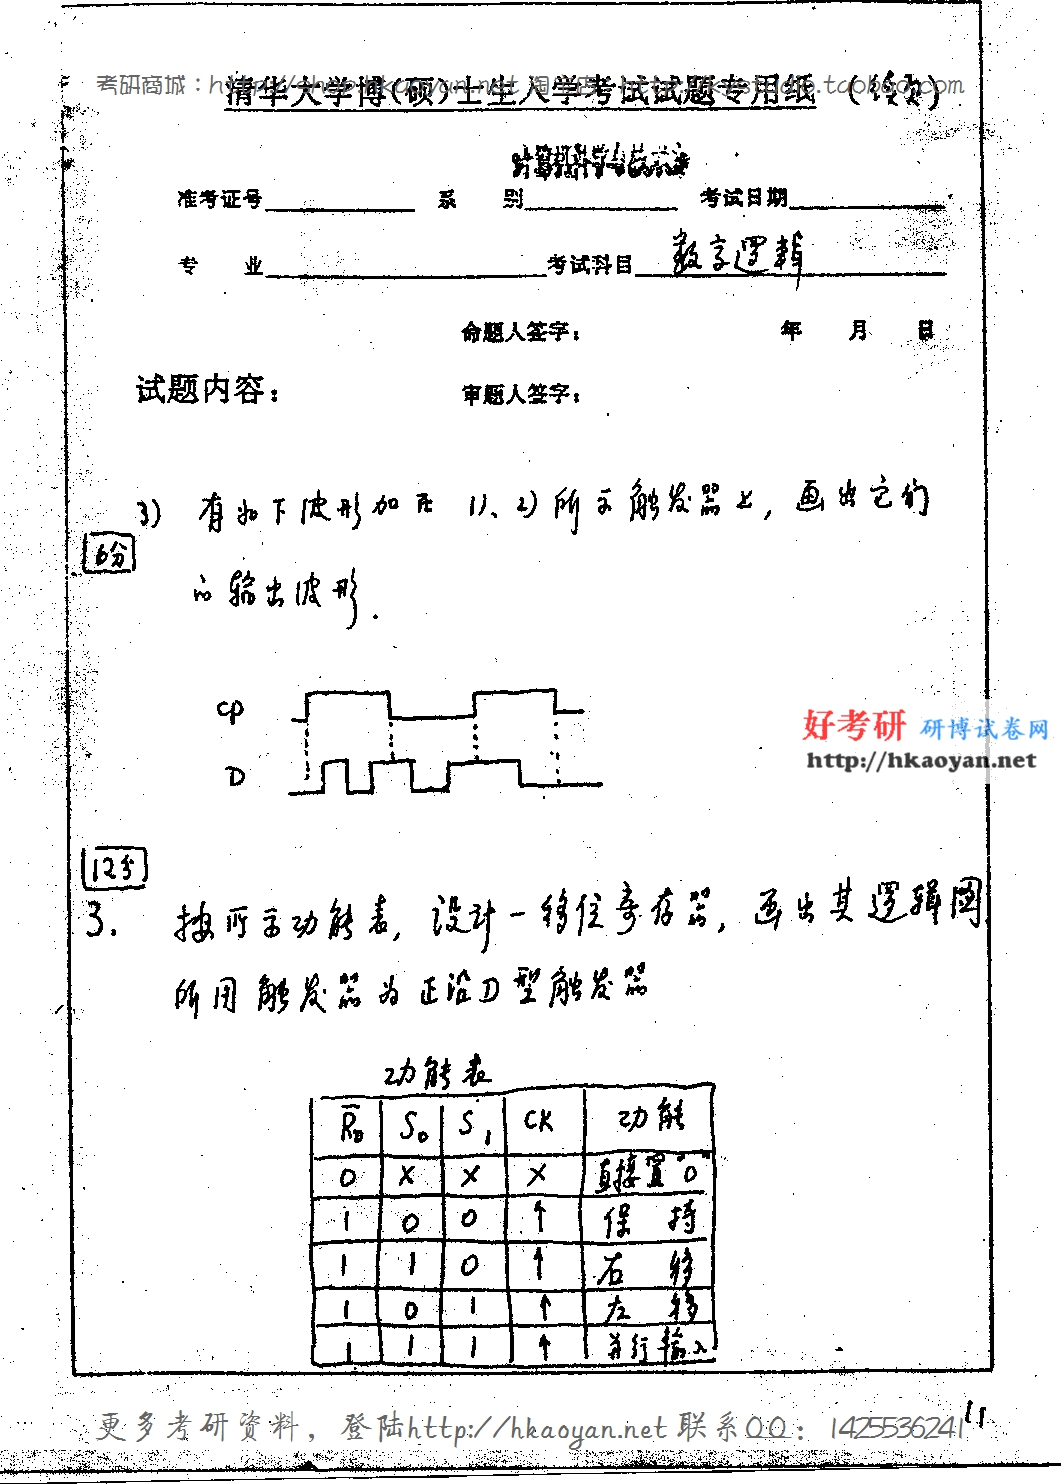 考研商城：http://shop.hkaoyan.net 淘
清华大学博(硕)士生入学考试试题专用纸 (续页)
计算机科学与技术
准考证号 系 别 考试日期
专 业 考试科目 数字逻辑
命题人签字： 年 月 日
试题内容： 审题人签字：
3) 有如下波形加在 1)、2)所示触发器上，画出它们
6分
的输出波形.
CP
好考研 研博试卷网
http://hkaoyan.net
D
12分
3. 按所示功能表，设计一移位寄存器，画出其逻辑图
所用触发器为正沿D型触发器
功能表
R̅D S0 S1 CK 功能
0 × × × 直接置"0"
1 0 0 ↑ 保持
1 1 0 ↑ 右移
1 0 1 ↑ 左移
1 1 1 ↑ 并行输入
更多考研资料，登陆http://hkaoyan.net 联系QQ：1425536241